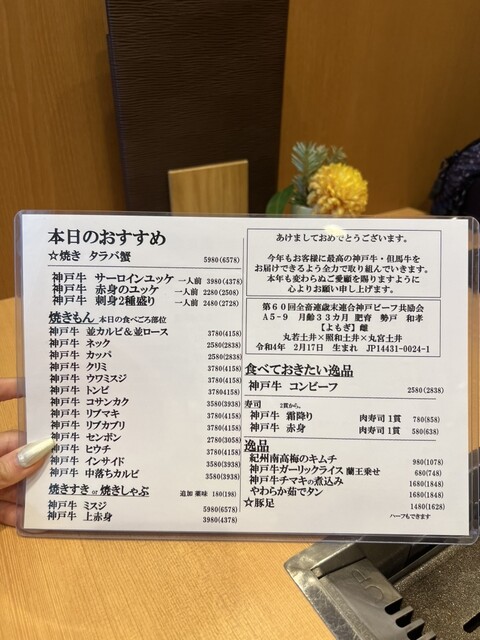 本日のおすすめ
☆焼き タラバ蟹 5980(6578)
神戸牛 サーロインユッケ 一人前 3980(4378)
神戸牛 赤身のユッケ 一人前 2280(2508)
神戸牛 刺身2種盛り 一人前 2480(2728)
焼きもん 本日の食べごろ部位
神戸牛 並カルビ&並ロース 3780(4158)
神戸牛 ネック 2580(2838)
神戸牛 カッパ 2580(2838)
神戸牛 クリミ 3780(4158)
神戸牛 ウワミスジ 3780(4158)
神戸牛 トンビ 3780(4158)
神戸牛 コサンカク 3580(3938)
神戸牛 リブマキ 3780(4158)
神戸牛 リブカブリ 3780(4158)
神戸牛 センボン 2780(3058)
神戸牛 ヒウチ 3780(4158)
神戸牛 インサイド 3580(3938)
神戸牛 中落ちカルビ 3580(3938)
焼きすき or 焼きしゃぶ 追加 薬味 180(198)
神戸牛 ミスジ 5980(6578)
神戸牛 上赤身 3980(4378)
あけましておめでとうございます。
今年もお客様に最高の神戸牛・但馬牛を
お届けできるよう全力で取り組んでいきます。
本年も変わらぬご愛顧を賜りますように
心よりお願い申し上げます。
第60回全畜連歳末連合神戸ビーフ共励会
A5-9 月齢33カ月 肥育 勢戸 和孝
【よもぎ】雌
丸若土井×照和土井×丸宮土井
令和4年 2月17日 生まれ JP14431-0024-1
食べておきたい逸品
神戸牛 コンビーフ 2580(2838)
寿司 2貫から。
神戸牛 霜降り 肉寿司1貫 780(858)
神戸牛 赤身 肉寿司1貫 580(638)
逸品
紀州南高梅のキムチ 980(1078)
神戸牛ガーリックライス 蘭王乗せ 680(748)
神戸牛チマキの煮込み 1680(1848)
やわらか茹でタン 1680(1848)
☆豚足 1480(1628)
ハーフもできます